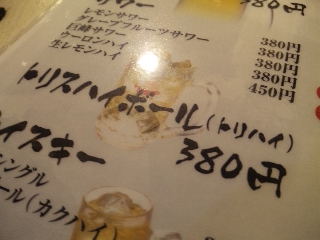 サワー 380円
レモンサワー 380円
グレープフルーツサワー 380円
巨峰サワー 380円
ウーロンハイ 380円
生レモンハイ 450円
トリスハイボール(トリハイ) 380円
イスキー
シングル
ール(カクハイ)